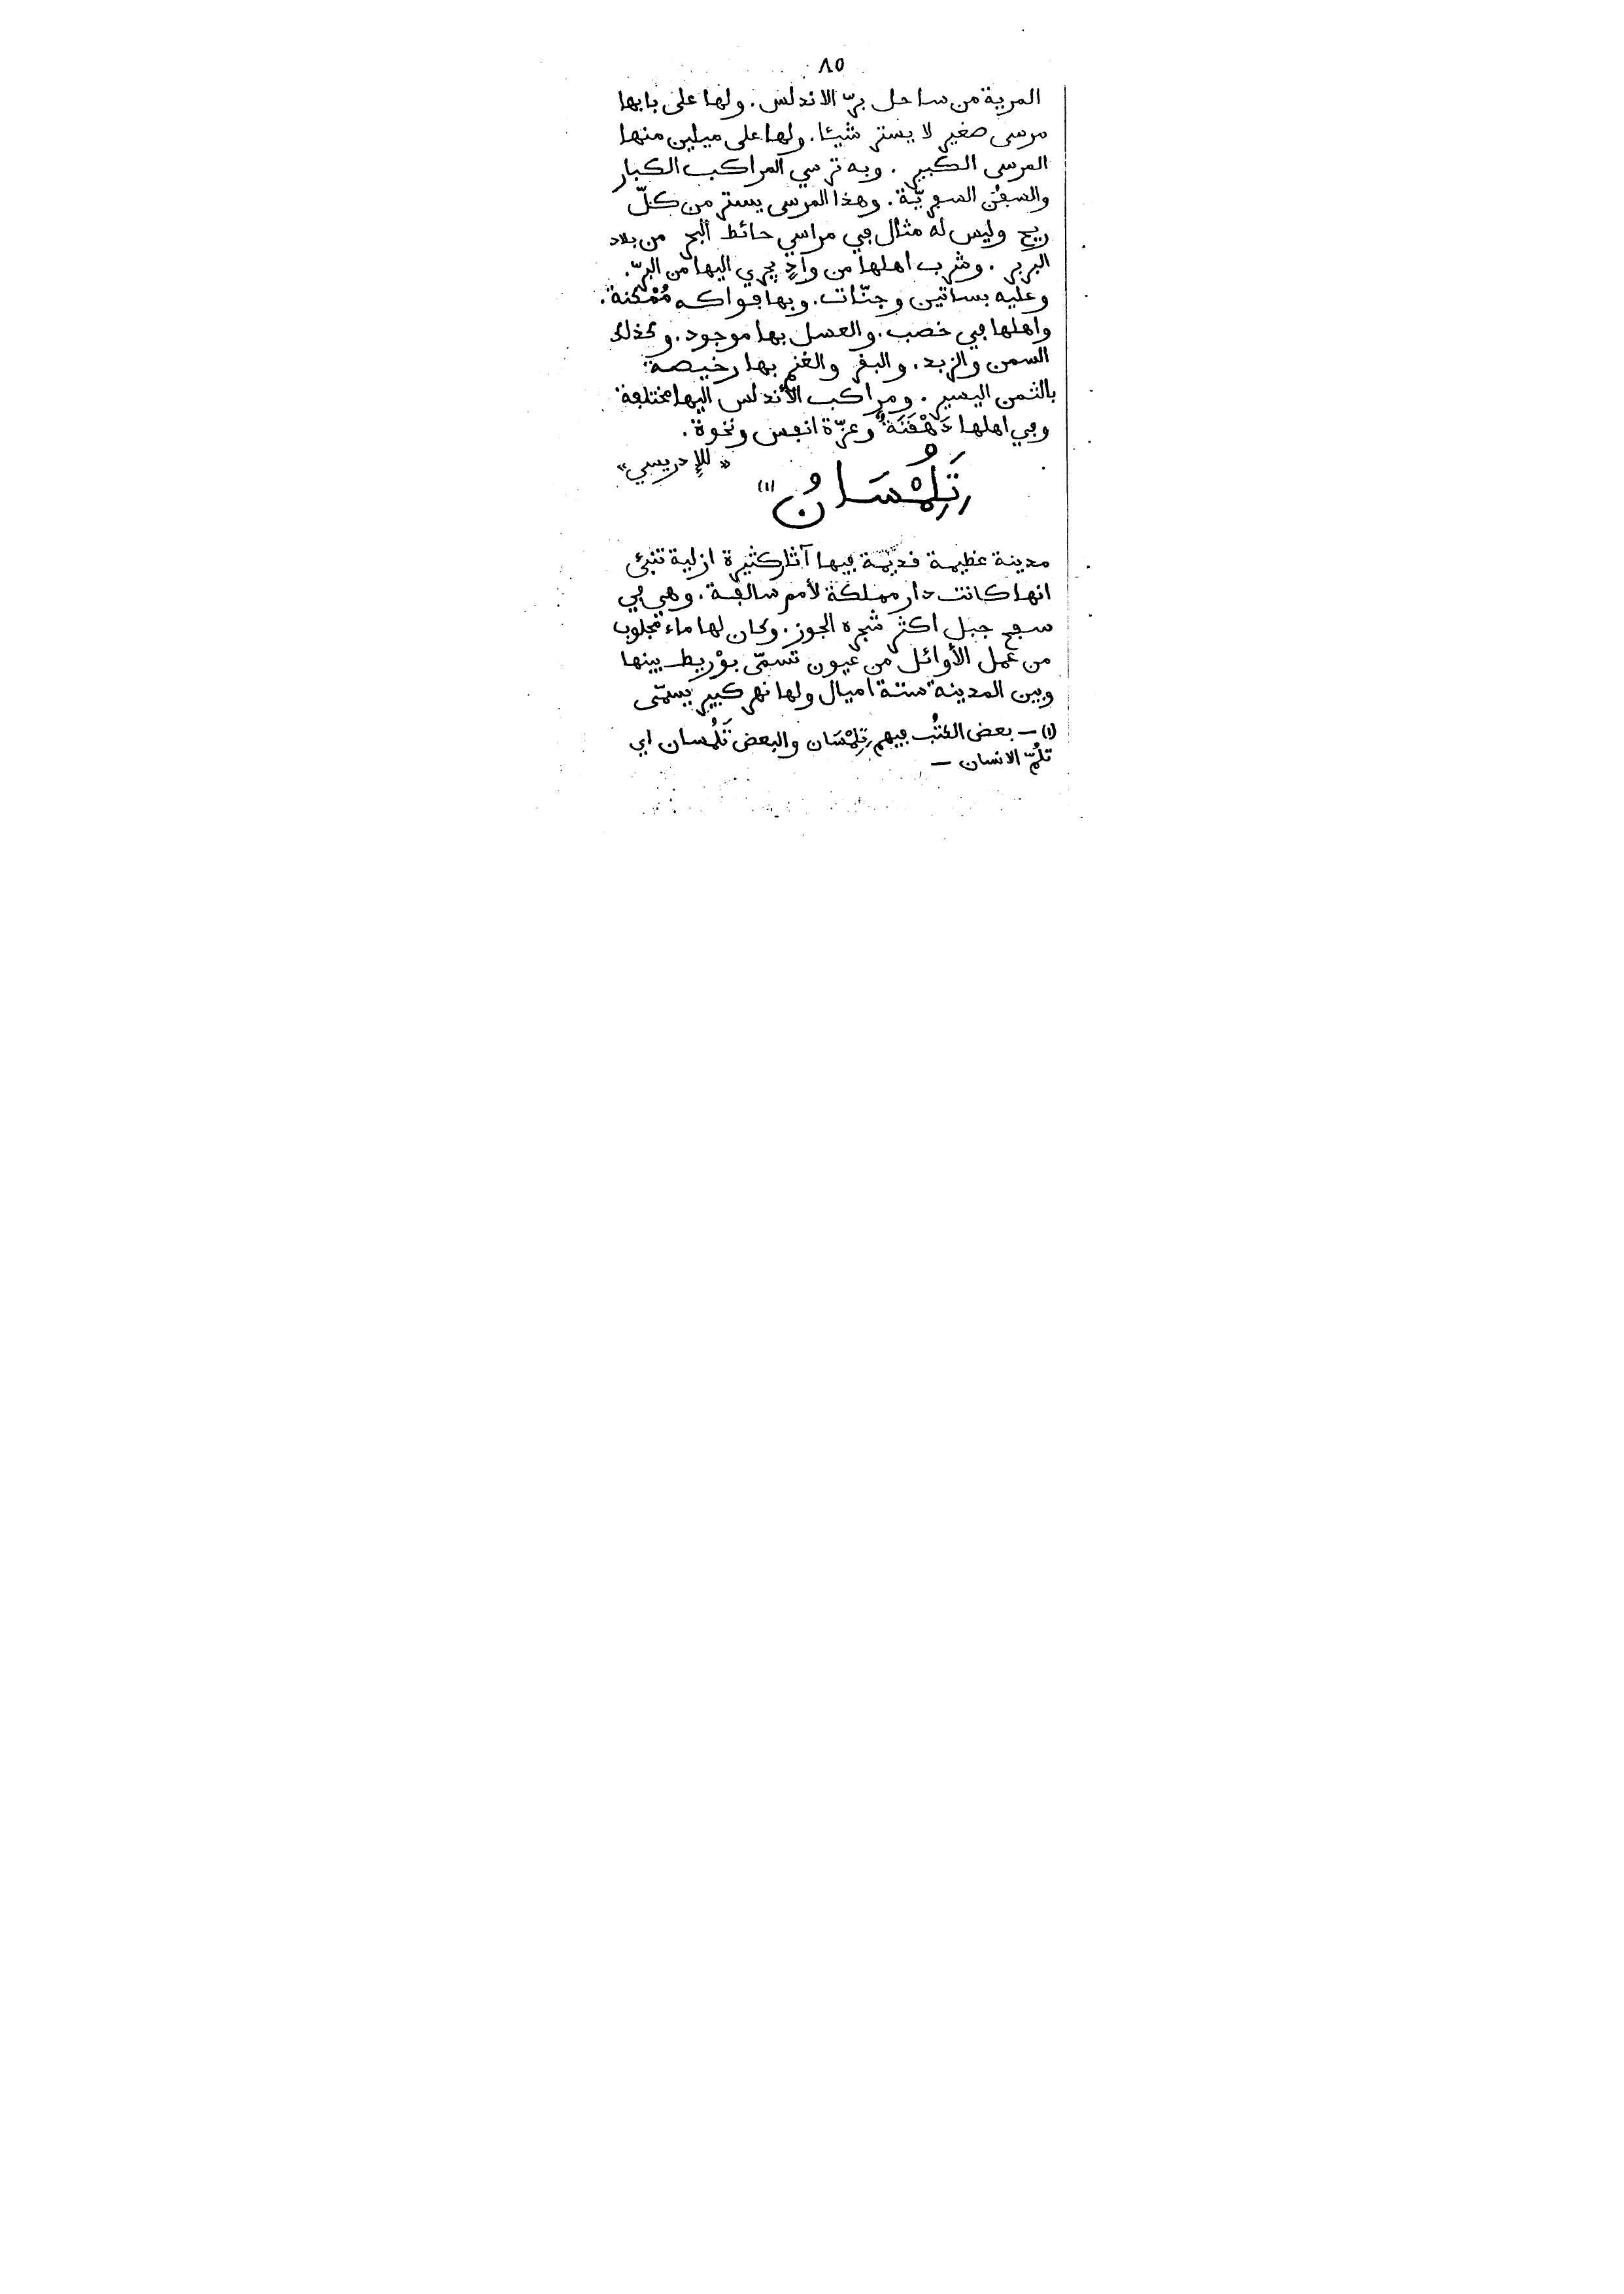 ٨٥
المرية من ساحل برّ الاندلس. ولها على بابها
مرسى صغير لا يستر شيئا. ولها على ميلين منها
المرسى الكبير. وبه ترسي المراكب الكبار
والسفن السفريّة. وهذا المرسى يستر من كلّ
ريح وليس له مثال في مراسي حائط البحر من بلاد
البربر. وشرب اهلها من وادٍ يجري اليها من البرّ.
وعليه بساتين وجنّات. وبها فواكه مُمْكنة.
واهلها في خصب. والعسل بها موجود. وكذلك
السمن والزبد. والبقر والغنم بها رخيصة
بالثمن اليسير. ومراكب الأندلس اليها مختلفة
وفي اهلها دَهْقَنَةٌ وعزّة انفس ونخوة.
«للإدريسي»
تِلِمْسَانُ (١)
مدينة عظيمة قديمة فيها آثار كثيرة ازلية تنبئ
انها كانت دار مملكة لأمم سالفة. وهي في
سفح جبل اكثر شجره الجوز. وكان لها ماء مجلوب
من عمل الأوائل من عيون تسمّى بوْريط بينها
وبين المدينة ستة اميال ولها نهر كبير يسمّى
(١) – بعض الكتُب فيهم تِلِمْسَان والبعض تَلُمسان اي
تلُمّ الانسان –